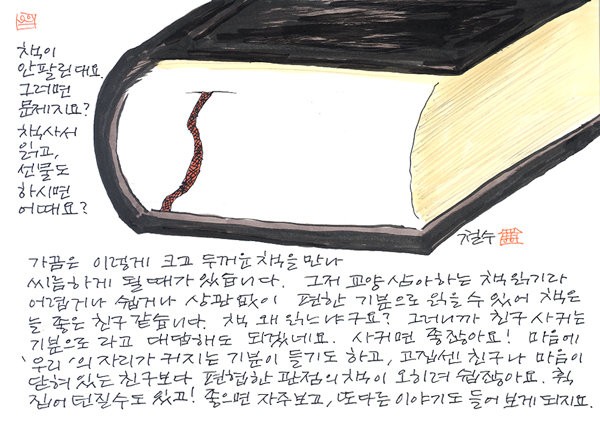 책이
안팔린대요.
그러면
문제지요?
책사서
읽고,
선물도
하시면
어때요?
철수
가끔은 이렇게 크고 두꺼운 책을 만나
씨름하게 될 때가 있습니다. 그저 교양 삼아하는 책 읽기라
어렵거나 쉽거나 상관 없이 편한 기분으로 읽을 수 있어 책은
늘 좋은 친구 같습니다. 책 왜 읽느냐구요? 그러니까 친구 사귀는
기분으로 라고 대답해도 되겠네요. 사귀면 좋잖아요! 마음에
'우리'의 자리가 커지는 기분이 들기도 하고, 고집센 친구나 마음이
닫혀 있는 친구보다 편협한 관점의 책이 오히려 쉽잖아요. 휙
집어 던질수도 있고! 좋으면 자주보고, 또다른 이야기도 들어 보게 되지요.